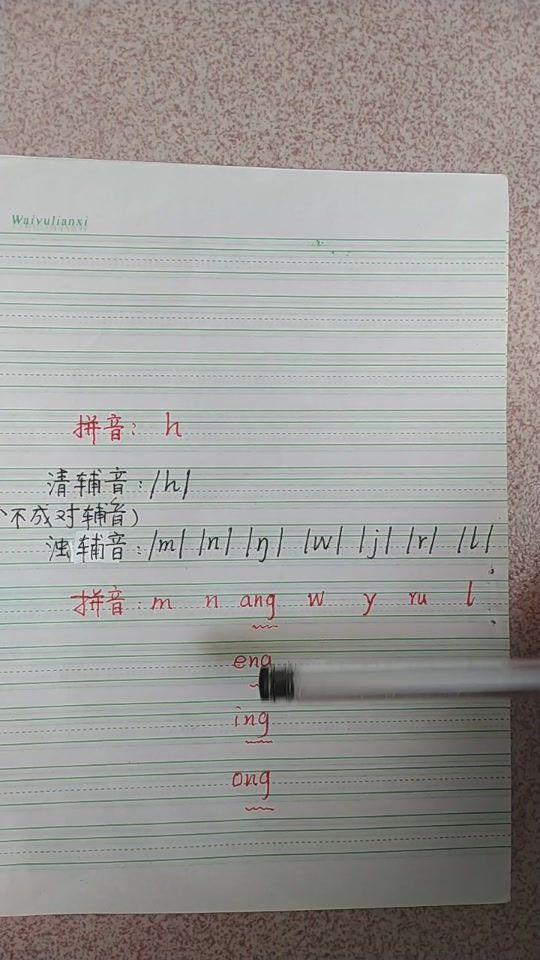 Waiyulianxi
拼音: h
清辅音: /h/
个不成对辅音)
浊辅音: /m/ /n/ /ŋ/ /w/ /j/ /r/ /l/
拼音: m n ang w y ru l
eng
ing
ong